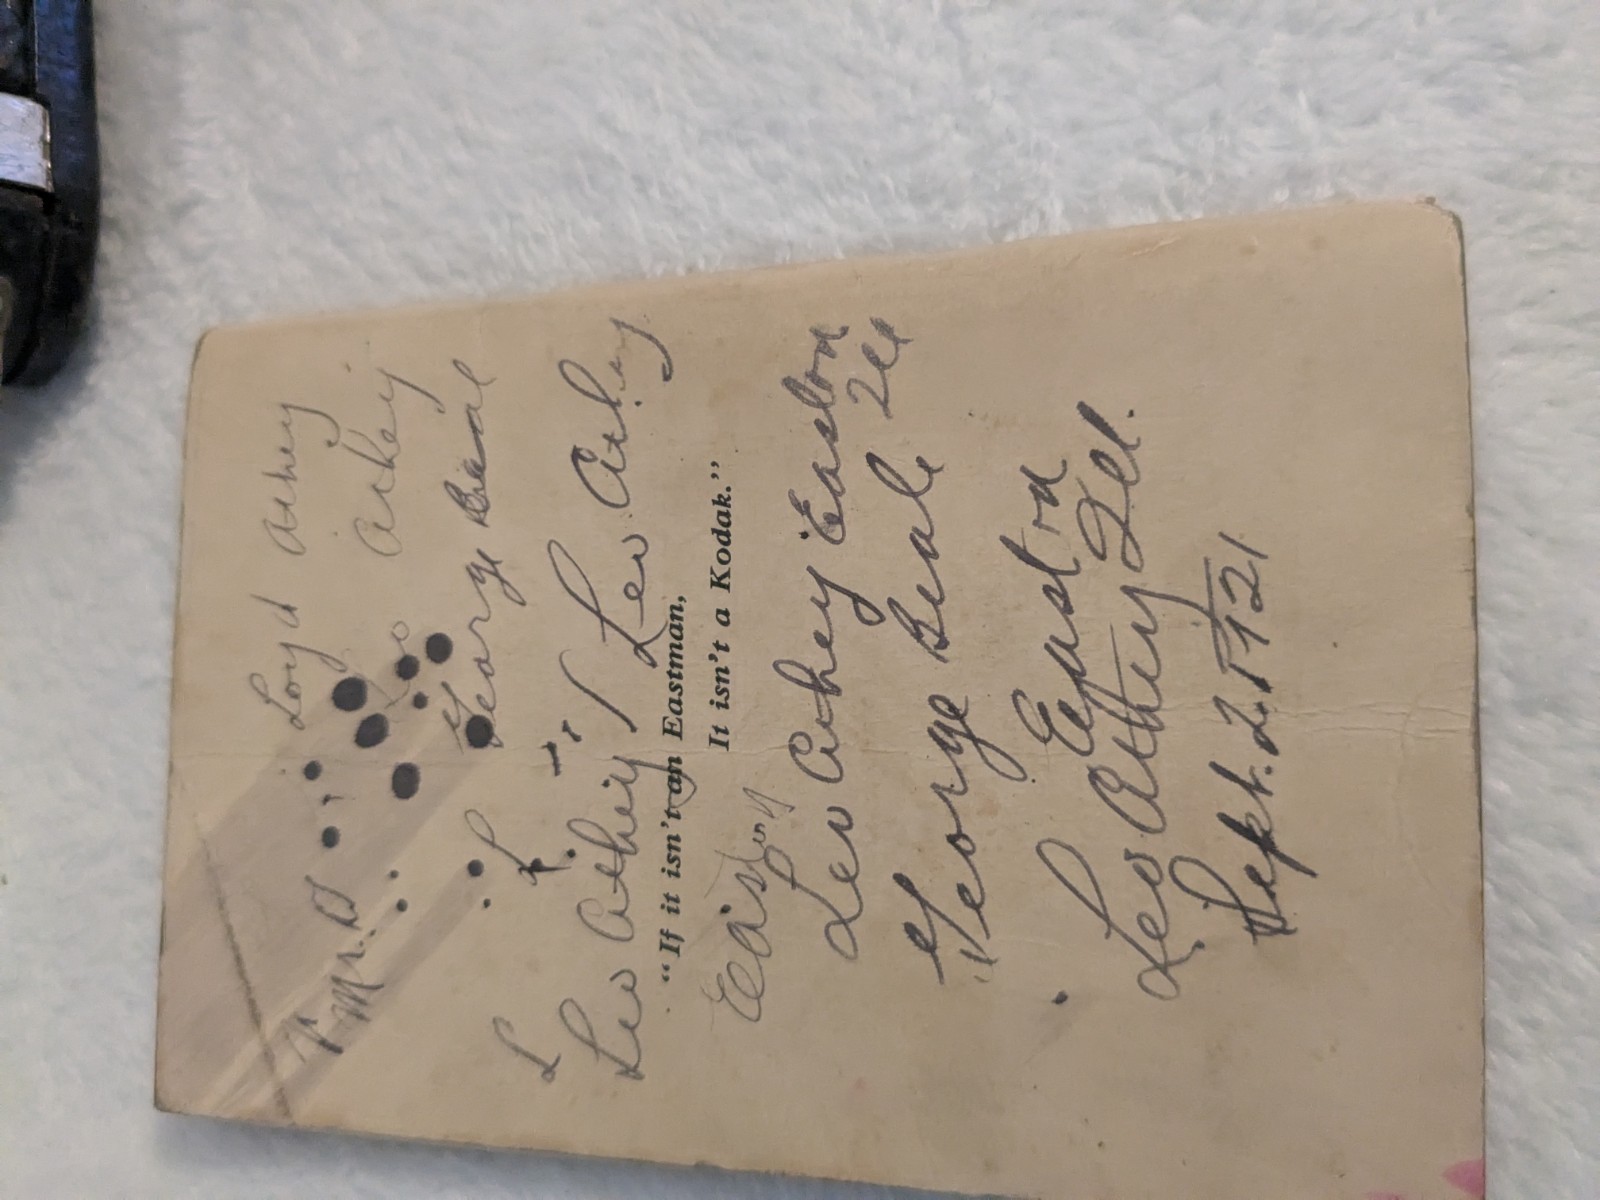 Loyd Athey
Mr. A Leo Athey
George Beal
L L
Leo Athey Leo Athey
"If it isn't an Eastman,
It isn't a Kodak."
Easton
Leo Athey Easton
George Beale Ill
Easton
Leo Athey Ill.
Sept. 2, 1921